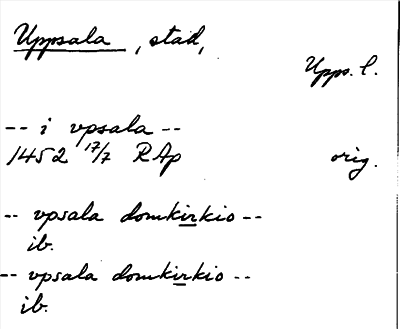 Uppsala, stad,
Upps. l.
-- i vpsala --
1452 17/7 RAp orig.
-- vpsala domkirkio --
ib.
-- vpsala domkirkio --
ib.